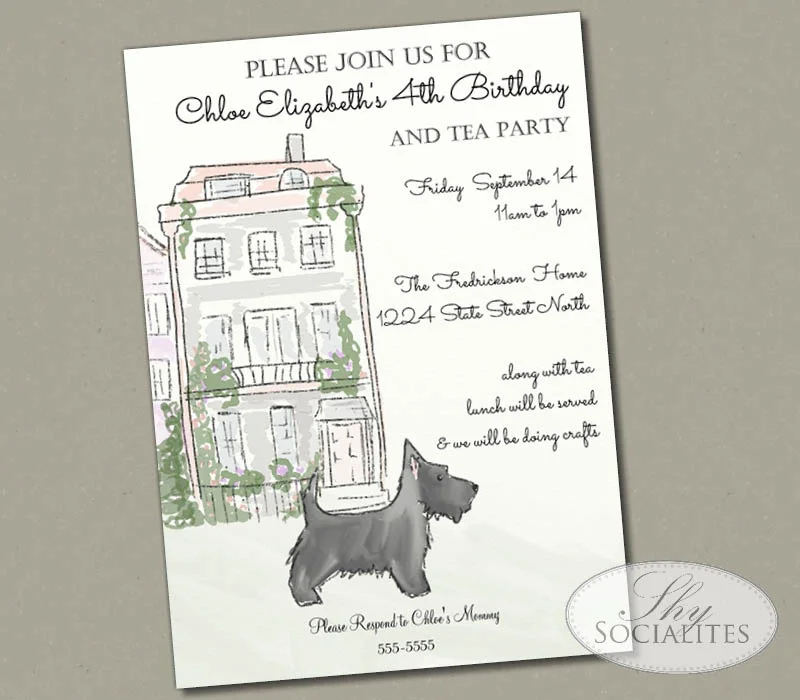 PLEASE JOIN US FOR
Chloe Elizabeth's 4th Birthday
AND TEA PARTY
Friday September 14
11am to 1pm
The Fredrickson Home
1224 State Street North
along with tea
lunch will be served
& we will be doing crafts
Please Respond to Chloe's Mommy
555-5555
Shy
SOCIALITES